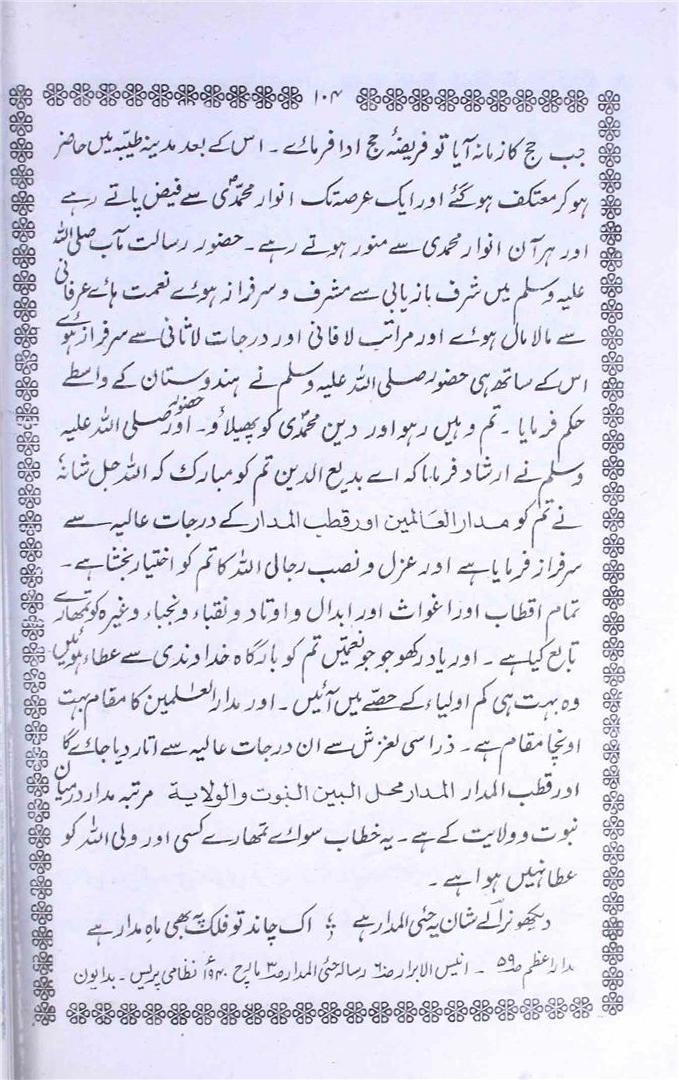 ۱۰۴
جب حج کا زمانہ آیا تو فریضۂ حج ادا فرمائے ۔ اس کے بعد مدینہ طیبہ میں حاضر
ہو کر معتکف ہو گئے اور ایک عرصہ تک انوار محمدیؐ سے فیض پاتے رہے
اور ہر آن انوار محمدی سے منور ہوتے رہے ۔ حضور رسالت مآب صلی اللہ
علیہ وسلم میں شرف باز یابی سے مشرف و سرفراز ہوئے نعمت ہائے عرفانی
سے مالا مال ہوئے اور مراتب لافانی اور درجات لاثانی سے سرفراز ہوئے
اس کے ساتھ ہی حضور صلی اللہ علیہ وسلم نے ہندوستان کے واسطے
حکم فرمایا ۔ تم وہیں رہو اور دین محمدیؐ کو پھیلاؤ ۔ اور حضور صلی اللہ علیہ
وسلم نے ارشاد فرمایا کہ اے بدیع الدین تم کو مبارک کہ اللہ جل شانہٗ
نے تم کو مدار العالمین اور قطب المدار کے درجات عالیہ سے
سرفراز فرمایا ہے اور عزل و نصب رجال اللہ کا تم کو اختیار بخشا ہے ۔
تمام اقطاب اور اغواث اور ابدال و اوتاد و نقباء و نجباء وغیرہ کو تمھارے
تابع کیا ہے ۔ اور یاد رکھو جو جو نعمتیں تم کو بارگاہ خداوندی سے عطاء ہوئیں
وہ بہت ہی کم اولیاء کے حصے میں آئیں ۔ اور مدار العٰلمین کا مقام بہت
اونچا مقام ہے ۔ ذرا سی لغزش سے ان درجات عالیہ سے اتار دیا جائے گا
اور قطب المدار المدار محل البین النبوت والولایۃ مرتبہ مدار درمیان
نبوت و ولایت کے ہے ۔ یہ خطاب سوائے تمھارے کسی اور ولی اللہ کو
عطا نہیں ہوا ہے ۔
دیکھو نرالے شان یہ حئی المدار ہے ؛ اک چاند تو فلک پہ بھی ماہ مدار ہے
مدار اعظم صـ ۵۹ ۔ انیس الابرار صـ ۶ رسالہ حئی المدار صـ ۳ مارچ ۱۹۴۰ء نظامی پریس ۔ بدایون